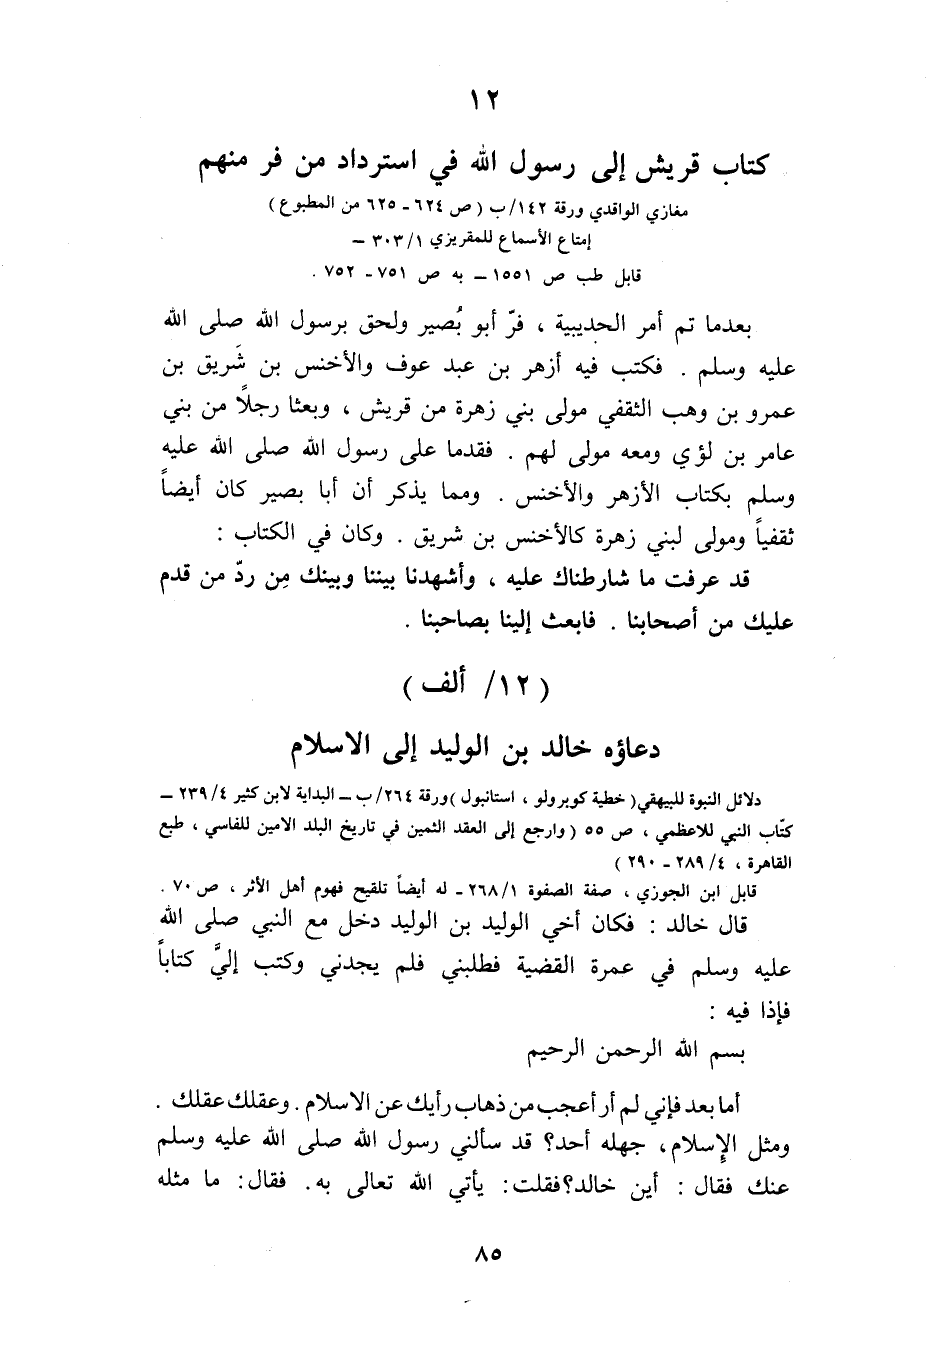 ١٢
كتاب قريش إلى رسول الله في استرداد من فر منهم
مغازي الواقدي ورقة ١٤٢/ب ( ص ٦٢٤ - ٦٢٥ من المطبوع )
إمتاع الأسماع للمقريزي ٣٠٣/١ –
قابل طب ص ١٥٥١ – به ص ٧٥١ - ٧٥٢ .
بعدما تم أمر الحديبية ، فرّ أبو بُصير ولحق برسول الله صلى الله
عليه وسلم . فكتب فيه أزهر بن عبد عوف والأخنس بن شَريق بن
عمرو بن وهب الثقفي مولى بني زهرة من قريش ، وبعثا رجلاً من بني
عامر بن لؤي ومعه مولى لهم . فقدما على رسول الله صلى الله عليه
وسلم بكتاب الأزهر والأخنس . ومما يذكر أن أبا بصير كان أيضاً
ثقفياً ومولى لبني زهرة كالأخنس بن شريق . وكان في الكتاب :
قد عرفت ما شارطناك عليه ، وأشهدنا بيننا وبينك مِن ردّ من قدم
عليك من أصحابنا . فابعث إلينا بصاحبنا .
( ١٢/ ألف )
دعاؤه خالد بن الوليد إلى الاسلام
دلائل النبوة للبيهقي( خطية كوبرولو ، استانبول )ورقة ٢٦٤/ب – البداية لابن كثير ٢٣٩/٤ –
كتّاب النبي للاعظمي ، ص ٥٥ ( وارجع إلى العقد الثمين في تاريخ البلد الامين للفاسي ، طبع
القاهرة ، ٢٨٩/٤ - ٢٩٠ )
قابل ابن الجوزي ، صفة الصفوة ٢٦٨/١ - له أيضاً تلقيح فهوم أهل الأثر ، ص ٧٠ .
قال خالد : فكان أخي الوليد بن الوليد دخل مع النبي صلى الله
عليه وسلم في عمرة القضية فطلبني فلم يجدني وكتب إليَّ كتاباً
فإذا فيه :
بسم الله الرحمن الرحيم
أما بعد فإني لم أر أعجب من ذهاب رأيك عن الاسلام . وعقلك عقلك .
ومثل الإسلام، جهله أحد؟ قد سألني رسول الله صلى الله عليه وسلم
عنك فقال : أين خالد؟فقلت: يأتي الله تعالى به. فقال: ما مثله
٨٥